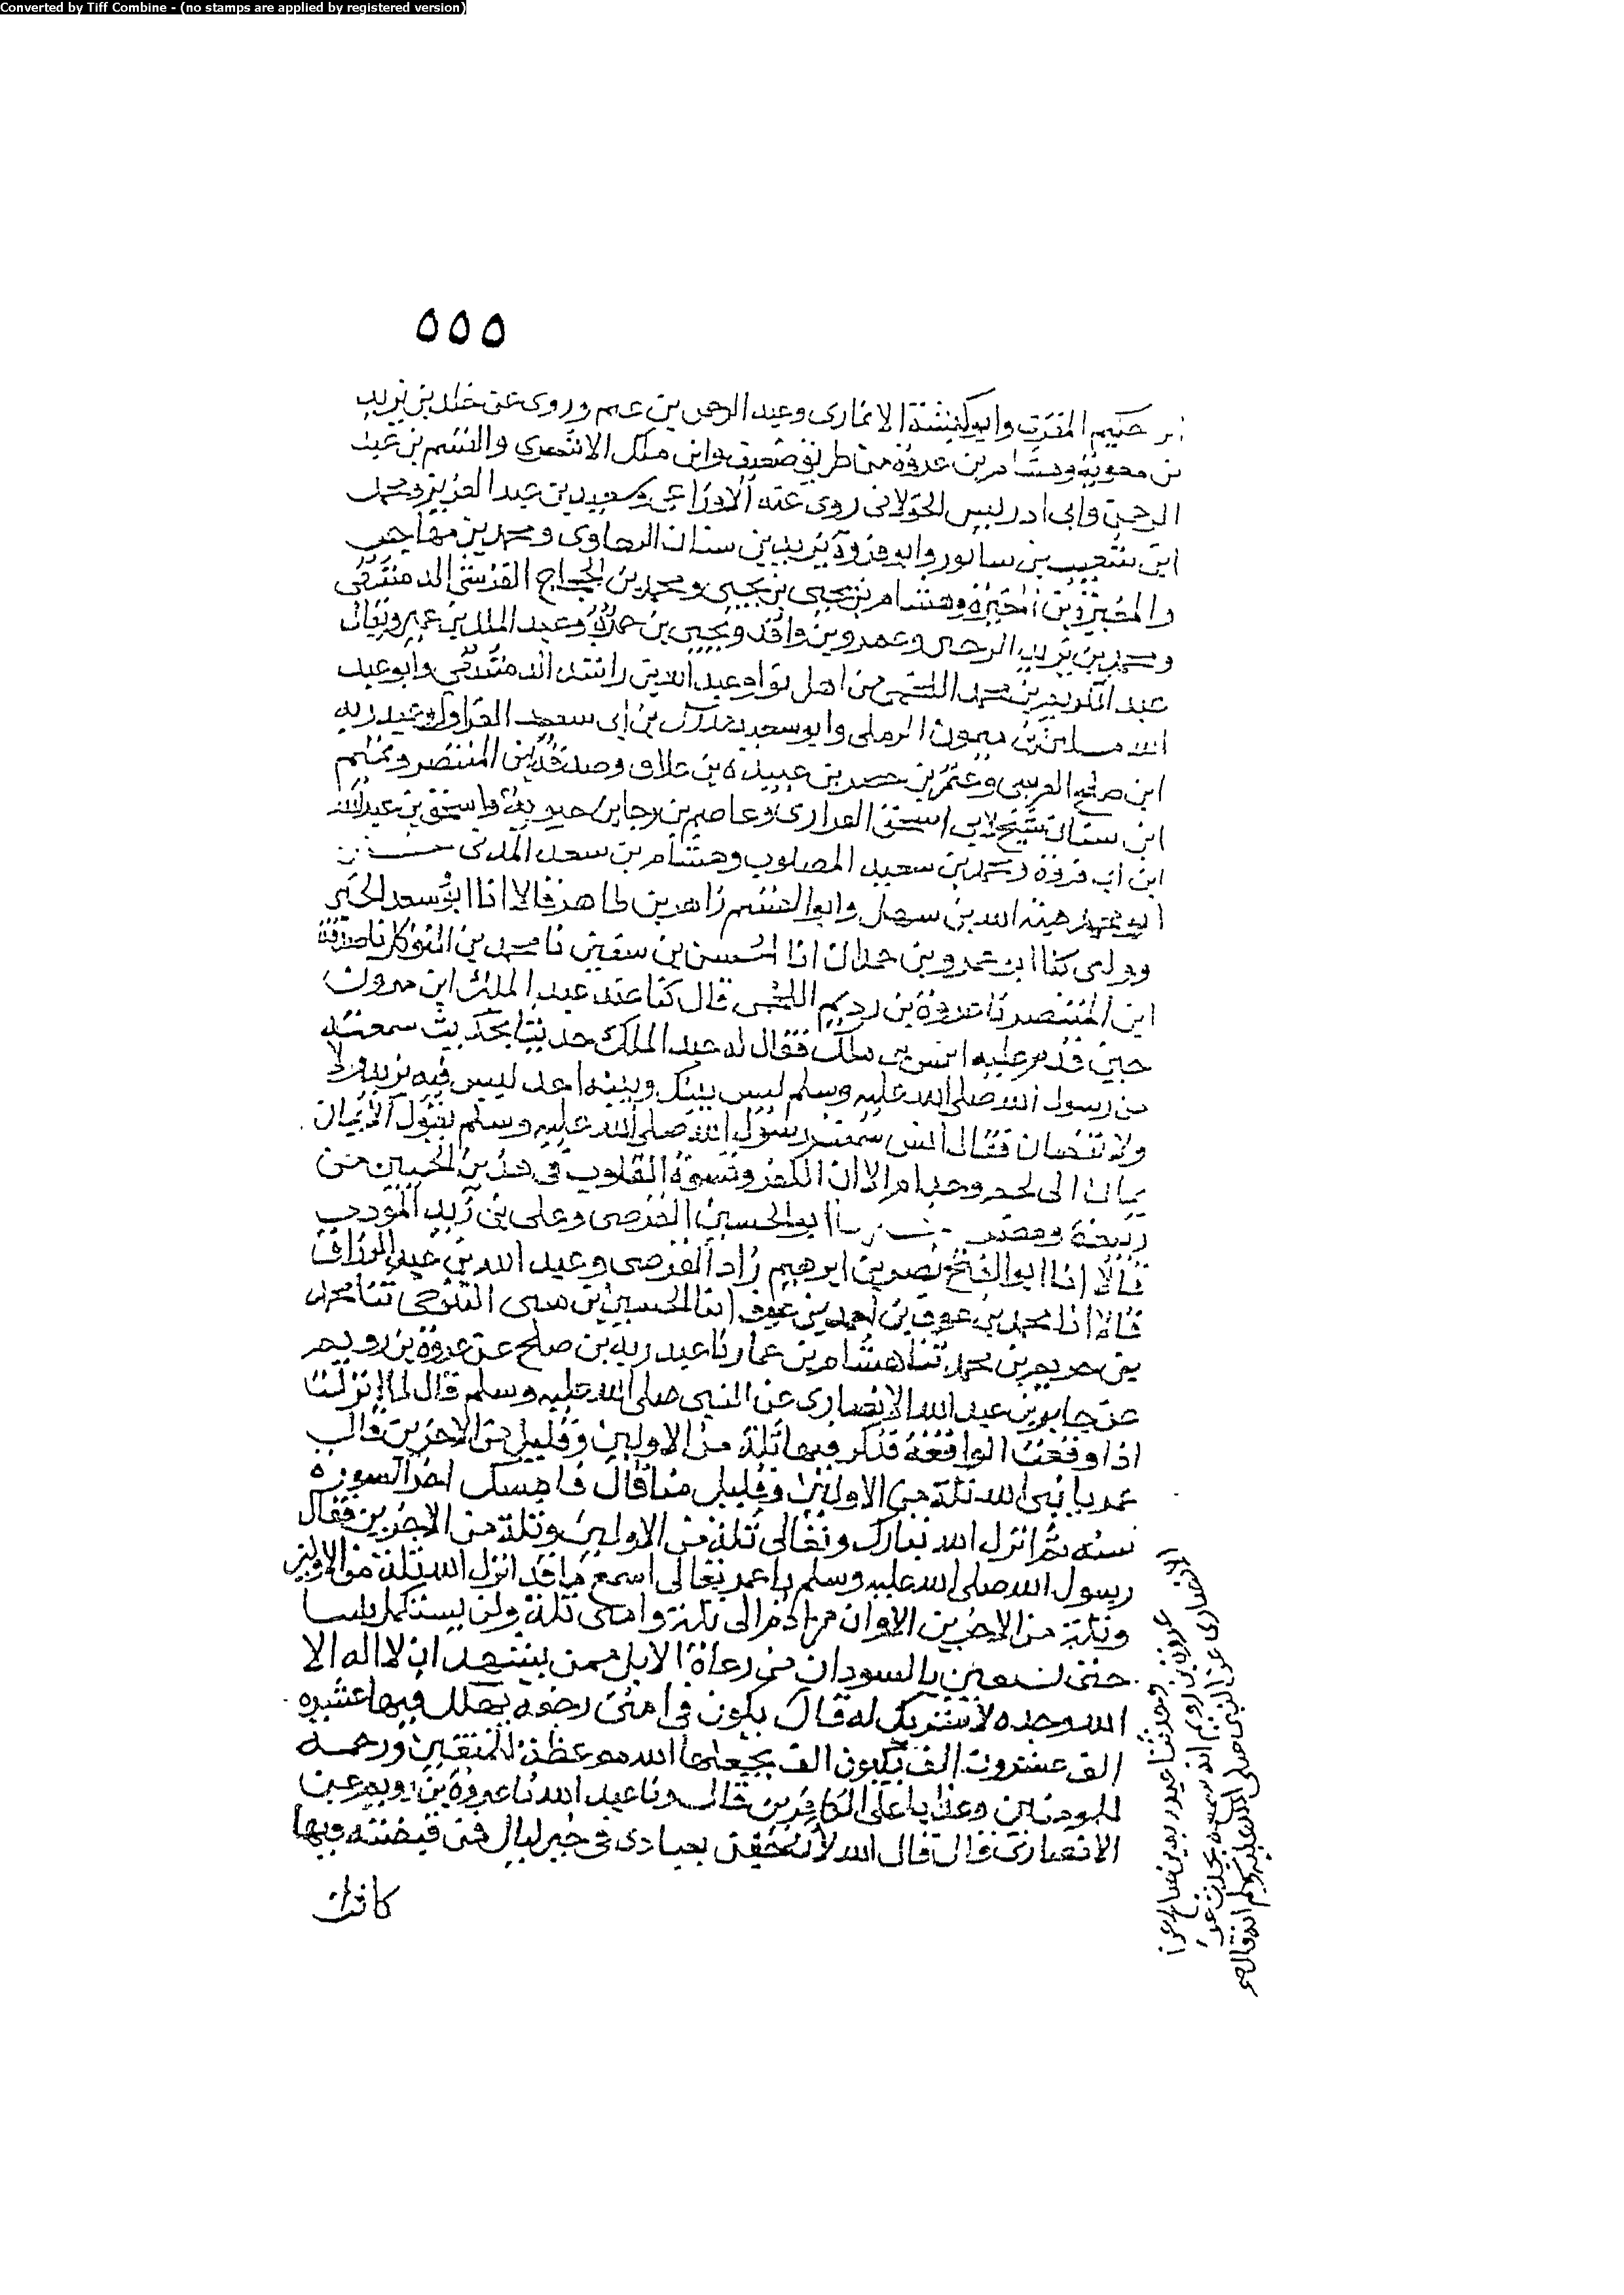 Converted by Tiff Combine - (no stamps are applied by registered version)
٥٥٥
حكيم وابو الانمارى وعبد الرحمن بن وروى عن خالد بن يزيد
بن معوية وهشام بن عروة من طريق ضعيف وابى ملك الاشعرى والقسم بن عبد
الرحمن وابى ادريس الخولانى روى عنه الاوزاعى وسعيد بن عبد العزيز ومحمد
ابن شعيب بن سابور وابو فروة يزيد بن سنان الرهاوى ومحمد بن مهاجر
والمغيرة بن المغيرة وهشام بن يحيى بن يحيى ومحمد بن الحجاج القرشى الدمشقى
ومحمد بن يزيد الرحبى وعمرو بن واقد ويحيى بن حمزة وعبد الملك بن عمير ويقال
عبد الملك بن محمد من اهل وعبد الله بن راشد الدمشقى وابو عبد
الله بن ميمون الرملى وابو سعيد بن ابى سعيد وعبد ربه
ابن صلح وعثمن بن حصن بن عبيدة بن علاق وصدقة بن المنتصر
ابن سنان شيخ لابى اسحق الفزارى وعاصم بن رجا بن حيوة واسحق بن عبد الله
ابن ابى فروة ومحمد بن سعيد المصلوب وهشام بن سعد المدنى
ابو محمد هبة الله بن سهل وابو القسم زاهر بن طاهر قالا انا ابو سعد
انا ابو عمرو بن حمدان انا الحسن بن سفين نا محمد بن المتوكل نا صدقة
ابن المنتصر نا عروة بن رويم اللخمى قال كنا عند عبد الملك ابن مروان
حين قدم عليه انس بن ملك فقال له عبد الملك حدثنا بحديث سمعته
من رسول الله صلى الله عليه وسلم ليس بينك وبينه احد ليس فيه
ولا نقصان فقال انس سمعت رسول الله صلى الله عليه وسلم يقول الايمان
يمان الى لخم وجذام الا ان الكفر وقسوة القلوب فى هذين الحيين من
ربيعة ومضر ابو الحسين الفرضى وعلى بن زيد المودب
قالا انا ابو الفتح نصر بن ابرهيم زاد الفرضى وعبد الله بن عبد الرزاق
قالا انا محمد بن عوف بن احمد بن عوف انا الحسين بن التنوخى ثنا محمد
بن محمد ثنا هشام بن عمار نا عبد ربه بن صلح عن عروة بن رويم
عن جابر بن عبد الله الانصارى عن النبى صلى الله عليه وسلم قال لما انزلت
اذا وقعت الواقعة فذكر فيها ثلة من الاولين وقليل من الاخرين قال
عمر يا نبى الله ثلة من الاولين وقليل منا قال فامسك اخر السورة
سنه ثم انزل الله تبارك وتعالى ثلة من الاولين وثلة من الاخرين فقال
رسول الله صلى الله عليه وسلم يا عمر تعالى اسمع ما قد انزل الله ثلة من الاولين
وثلة من الاخرين الا وان من ادم الى ثلة وامتى ثلة ولن يستكمل
حتى نستعين بالسودان من رعاة الابل ممن يشهد ان لا اله الا
الله وحده لا شريك له قال يكون فى امتى فيها عشرة
الف عشرون الف ثلثون الف يجعلها الله موعظة للمتقين ورحمة
للمومنين وعذابا على الكافرين قال ونا عبد الله نا عروة بن رويم عن
الانصارى قال قال الله لان بعبادى فى خير ليال فمن قبضته فيها
كانت
وحدثنا عبد ربه بن صلح عن
عروة بن رويم انه سمعه يحدث عن
الانصارى عن النبى صلى الله عليه وسلم انه قال